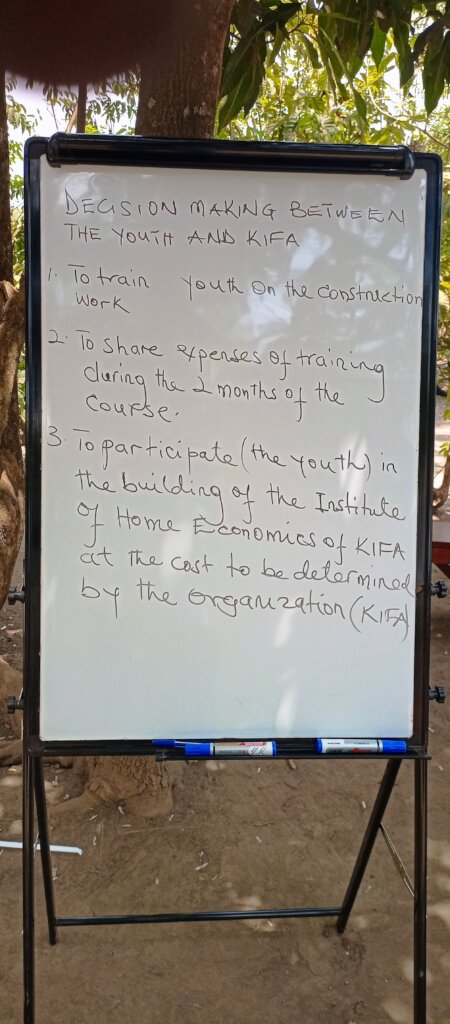 DECISION MAKING BETWEEN
THE YOUTH AND KIFA
1. To train youth on the construction
work
2. To share expenses of training
during the 2 months of the
course.
3. To participate (the youth) in
the building of the Institute
of Home Economics of KIFA
at the cost to be determined
by the organization (KIFA)